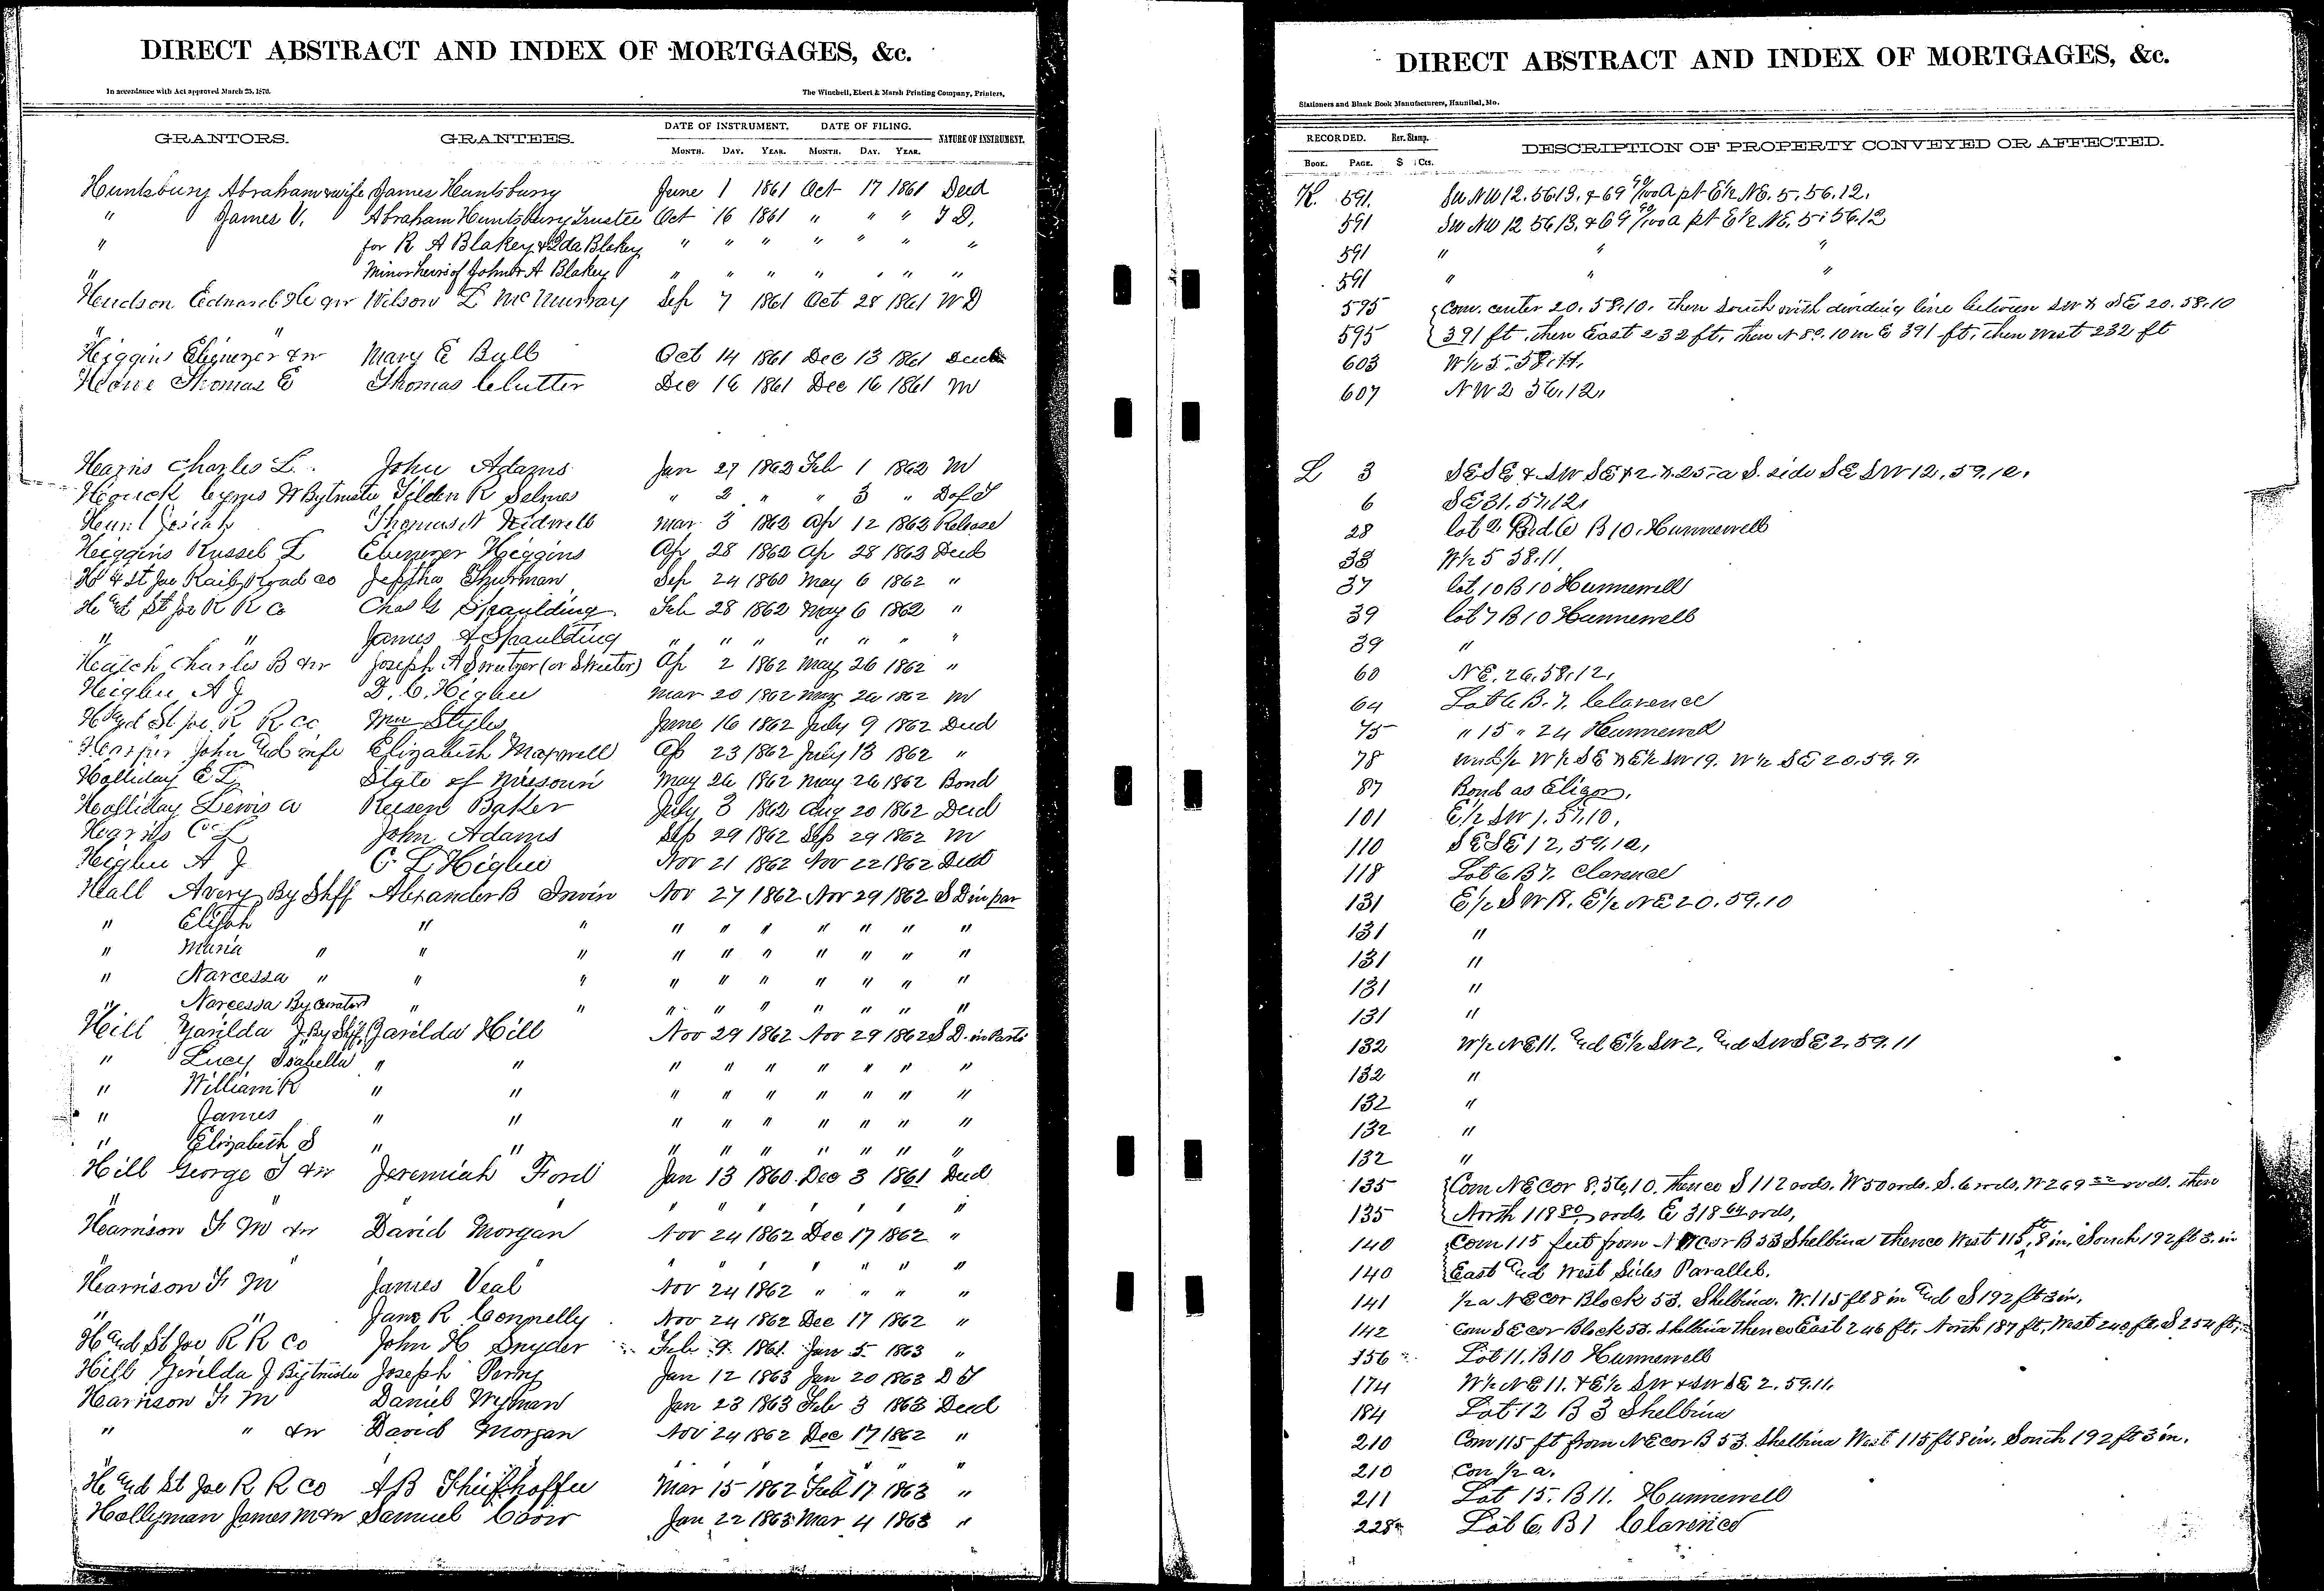 DIRECT ABSTRACT AND INDEX OF MORTGAGES, &c.
In accordance with Act approved March 25, 1870.
The Winchell, Ebert & Marsh Printing Company, Printers,
GRANTORS. GRANTEES. DATE OF INSTRUMENT. DATE OF FILING. NATURE OF INSTRUMENT.
MONTH. DAY. YEAR. MONTH. DAY. YEAR.
Huntsbury Abraham & wife James Huntsbury June 1 1861 Oct 17 1861 Deed
" James V. Abraham Huntsbury Trustee Oct 16 1861 " " " T D,
" for R A Blakey & Ida Blakey " " " " " " "
" Minor heirs of John A Blakey " " " " " " "
Hudson Edward H & wr Wilson L McMurray Sep 7 1861 Oct 28 1861 W D
" "
Higgins Ebenezer & wr Mary E Bull Oct 14 1861 Dec 13 1861 Deed
Thomas E Thomas Clutter Dec 16 1861 Dec 16 1861 M
Charles L. John Adams Jan 27 1862 Feb 1 1862 M
Cyrus W By trustee Tilden R Selmes " 2 " " 3 " D of T
Hunt Josiah Thomas A Tidwell Mar 3 1862 Ap 12 1862 Release
Higgins Russel L Ebenezer Higgins Ap 28 1862 Ap 28 1862 Deed
H & St Joe Rail Road Co Jeptha Thurman Sep 24 1860 May 6 1862 "
H and St Joe R R Co Chas G Spaulding Feb 28 1862 May 6 1862 "
" " James A Spaulding " " " " " " "
Hatch Charles B & wr Joseph A Swetzer (or Skeeter) Ap 2 1862 May 26 1862 "
Highu A J D. C. Highu Mar 20 1862 May 26 1862 M
H and St Joe R R Co Wm Styles June 16 1862 July 9 1862 Deed
Harper John and wife Elizabeth Maxwell Ap 23 1862 July 13 1862 "
Holliday E L State of Missouri May 26 1862 May 26 1862 Bond
Holliday Lewis A Reisen Baker July 3 1862 Aug 20 1862 Deed
C L John Adams Sep 29 1862 Sep 29 1862 M
Highu A J C. L Highu Nov 21 1862 Nov 22 1862 Deed
Hall Avery By Shff Alexander B Irwin Nov 27 1862 Nov 29 1862 S D in par
" Elijah " " " " " " " " "
" Maria " " " " " " " " " "
" Narcessa " " " " " " " " " "
" Narcessa By Curator " " " " " " " " "
Hill Zarilda J By Shff Zarilda Hill Nov 29 1862 Nov 29 1862 S D. in Parti
" Lucy Isabella " " " " " " " " "
" William R " " " " " " " " "
" James " " " " " " " " "
" Elizabeth S " " " " " " " " "
Hill George T & wr Jeremiah Ford Jan 13 1860 Dec 3 1861 Deed
" " " " " " " " "
Harrison F M & wr David Morgan Nov 24 1862 Dec 17 1862 "
" " " " " " " " "
Harrison F M James Veal Nov 24 1862 " " " "
" " Jane R Connelly Nov 24 1862 Dec 17 1862 "
H and St Joe R R Co John H Snyder Feb 9 1861 Jan 5 1863 "
Hill Zerilda J By trustee Joseph Perry Jan 12 1863 Jan 20 1863 D T
Harrison F M Daniel Wyman Jan 23 1863 Feb 3 1863 Deed
" " & wr David Morgan Nov 24 1862 Dec 17 1862 "
" " " " " " "
H and St Joe R R Co A B Mar 15 1862 Feb 17 1863 "
Hollyman James M & wr Samuel Coon Jan 22 1863 Mar 4 1863 "
DIRECT ABSTRACT AND INDEX OF MORTGAGES, &c.
Stationers and Blank Book Manufacturers, Hannibal, Mo.
RECORDED. Rev. Stamp. DESCRIPTION OF PROPERTY CONVEYED OR AFFECTED.
BOOK. PAGE. $ Cts.
K. 591. SW NW 12. 56 13. & 69 90/100 A pt E 1/2 NE. 5. 56. 12.
591 SW NW 12 56 13. & 69 90/100 a pt E 1/2 NE. 5. 56. 12
591 " " "
591 " " "
595 Com. center 20. 58. 10. then South with dividing line between SW & SE 20. 58. 10
595 391 ft, then East 232 ft, then N 8°. 10 m E 391 ft, then West 232 ft
603 W 1/2 5. 58. 11.
607 NW 2 56. 12.
L 3 SE SE & SW SE & 25 a S. side SE SW 12. 59. 12.
6 SE 31. 57. 12.
28 lot 2 B 10. Hunnewell
33 W 1/2 5 58. 11
37 lot 10 B 10 Hunnewell
39 lot 7 B 10 Hunnewell
39 "
60 NE. 26. 58. 12.
64 Lot 6 B. 7. Clarence
75 " 15 " 24 Hunnewell
78 und 1/2 W 1/2 SE & E 1/2 SW 19. W 1/2 SE 20. 59. 9.
87 Bond as Eligor.
101 E 1/2 SW 1. 57. 10.
110 SE SE 12, 59. 12,
118 Lot 6 B 7. Clarence
131 E 1/2 S W 17. E 1/2 NE 20. 59. 10
131 "
131 "
131 "
131 "
132 W 1/2 NE 11. and E 1/2 SW 2, and SW SE 2. 59. 11
132 "
132 "
132 "
132 "
135 Com NE cor 8. 56. 10. thence S 112 rods. W 50 rods. S. 6 rods. W 269 rods. then
135 North 118 80 rods, E 318 64 rods,
140 Com 115 feet from NE cor B 53 Shelbina thence West 115 ft 8 in, South 192 ft 3 in
140 East and West Sides Parallel.
141 1/2 a NE cor Block 53. Shelbina. W. 115 ft 8 in and S 192 ft 3 in.
142 Com SE cor Block 53. Shelbina thence East 246 ft, North 187 ft, West 240 ft. S 254 ft,
156 Lot 11. B 10 Hunnewell
174 W 1/2 NE 11. & E 1/2 SW & SW SE 2. 59. 11.
184 Lot 12 B 3 Shelbina
210 Com 115 ft from NE cor B 53. Shelbina West 115 ft 8 in. South 192 ft 3 in.
210 Con 1/2 a.
211 Lot 15. B 11. Hunnewell
228 Lot 6. B 1 Clarence